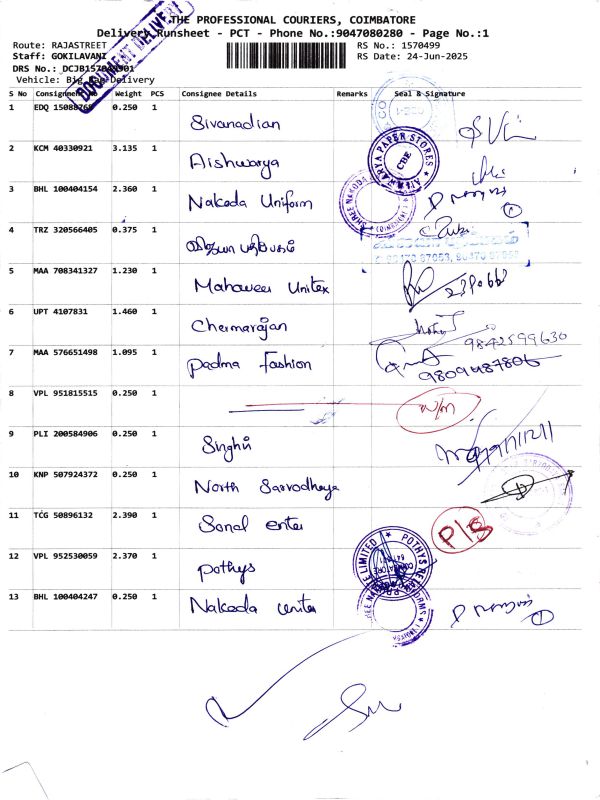 THE PROFESSIONAL COURIERS, COIMBATORE
Delivery Runsheet - PCT - Phone No.:9047080280 - Page No.:1
Route: RAJASTREET
RS No.: 1570499
Staff: GOKILAVANI
RS Date: 24-Jun-2025
DRS No.:
Vehicle: Big Bag Delivery
DOCUMENT DELIVERY
S No Consignment No Weight PCS Consignee Details Remarks Seal & Signature
1 EDQ 0.250 1 Sivanadian
2 KCM 40330921 3.135 1 Aishwarya
AISHWARYA PAPER STORES
CBE
3 BHL 100404154 2.360 1 Nakoda Uniform
SHREE NAKODA
4 TRZ 320566405 0.375 1
5 MAA 708341327 1.230 1 Mahaveer Unitex
6 UPT 4107831 1.460 1 Chermarajan
9842599630
7 MAA 576651498 1.095 1 Padma Fashion
9809487806
8 VPL 951815515 0.250 1
9 PLI 200584906 0.250 1 Singhvi
10 KNP 507924372 0.250 1 North Sarvodhaya
11 TCG 50896132 2.390 1 Sonal enter
P/S
12 VPL 952530059 2.370 1 Pothys
POTHYS PRIVATE LIMITED
COIMBATORE
13 BHL 100404247 0.250 1 Nakoda